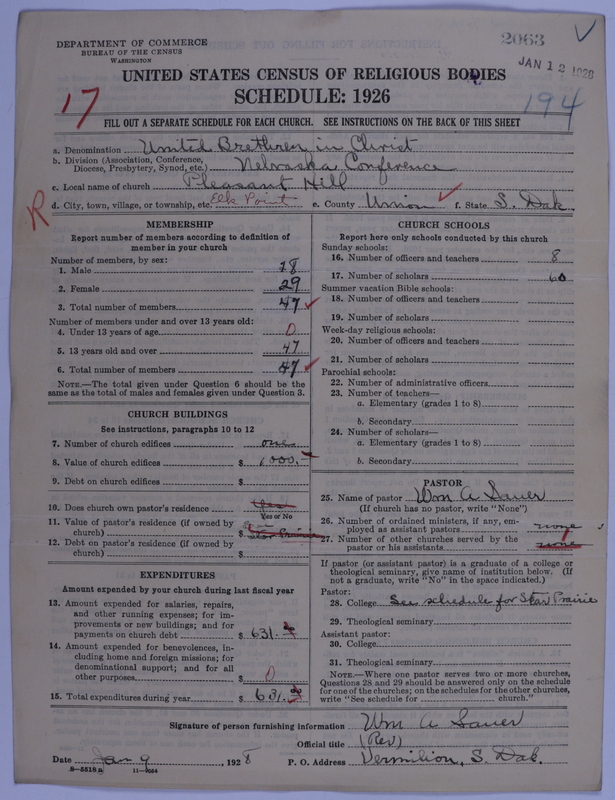 DEPARTMENT OF COMMERCE
BUREAU OF THE CENSUS
WASHINGTON
2063
JAN 12 1928
UNITED STATES CENSUS OF RELIGIOUS BODIES
SCHEDULE: 1926
17
194
FILL OUT A SEPARATE SCHEDULE FOR EACH CHURCH. SEE INSTRUCTIONS ON THE BACK OF THIS SHEET
a. Denomination United Brethren in Christ
b. Division (Association, Conference, Diocese, Presbytery, Synod, etc.) Nebraska Conference
c. Local name of church Pleasant Hill
R
d. City, town, village, or township, etc. Elk Point e. County Union f. State S. Dak.
MEMBERSHIP
Report number of members according to definition of
member in your church
Number of members, by sex:
1. Male 18
2. Female 29
3. Total number of members 47
Number of members under and over 13 years old:
4. Under 13 years of age 0
5. 13 years old and over 47
6. Total number of members 47
NOTE.—The total given under Question 6 should be the
same as the total of males and females given under Question 3.
CHURCH BUILDINGS
See instructions, paragraphs 10 to 12
7. Number of church edifices one
8. Value of church edifices $ 1000.-
9. Debt on church edifices $
10. Does church own pastor's residence Yes
Yes or No
11. Value of pastor's residence (if owned by
church) $ Star Prairie
12. Debt on pastor's residence (if owned by
church) $
EXPENDITURES
Amount expended by your church during last fiscal year
13. Amount expended for salaries, repairs,
and other running expenses; for im-
provements or new buildings; and for
payments on church debt $ 631.
14. Amount expended for benevolences, in-
cluding home and foreign missions; for
denominational support; and for all
other purposes $ 0
15. Total expenditures during year $ 631.
CHURCH SCHOOLS
Report here only schools conducted by this church
Sunday schools:
16. Number of officers and teachers 8
17. Number of scholars 60
Summer vacation Bible schools:
18. Number of officers and teachers
19. Number of scholars
Week-day religious schools:
20. Number of officers and teachers
21. Number of scholars
Parochial schools:
22. Number of administrative officers
23. Number of teachers—
a. Elementary (grades 1 to 8)
b. Secondary
24. Number of scholars—
a. Elementary (grades 1 to 8)
b. Secondary
PASTOR
25. Name of pastor Wm A Sauer
(If church has no pastor, write "None")
26. Number of ordained ministers, if any, em-
ployed as assistant pastors none
27. Number of other churches served by the
pastor or his assistants none 1
If pastor (or assistant pastor) is a graduate of a college or
theological seminary, give name of institution below. (If
not a graduate, write "No" in the space indicated.)
Pastor:
28. College See schedule for Star Prairie
29. Theological seminary
Assistant pastor:
30. College
31. Theological seminary
NOTE.—Where one pastor serves two or more churches,
Questions 28 and 29 should be answered only on the schedule
for one of the churches; on the schedules for the other churches,
write "See schedule for church."
Signature of person furnishing information Wm A Sauer
Official title (Rev)
Date Jan 9, 1928 P. O. Address Vermilion, S. Dak.
8—5518a 11—9054